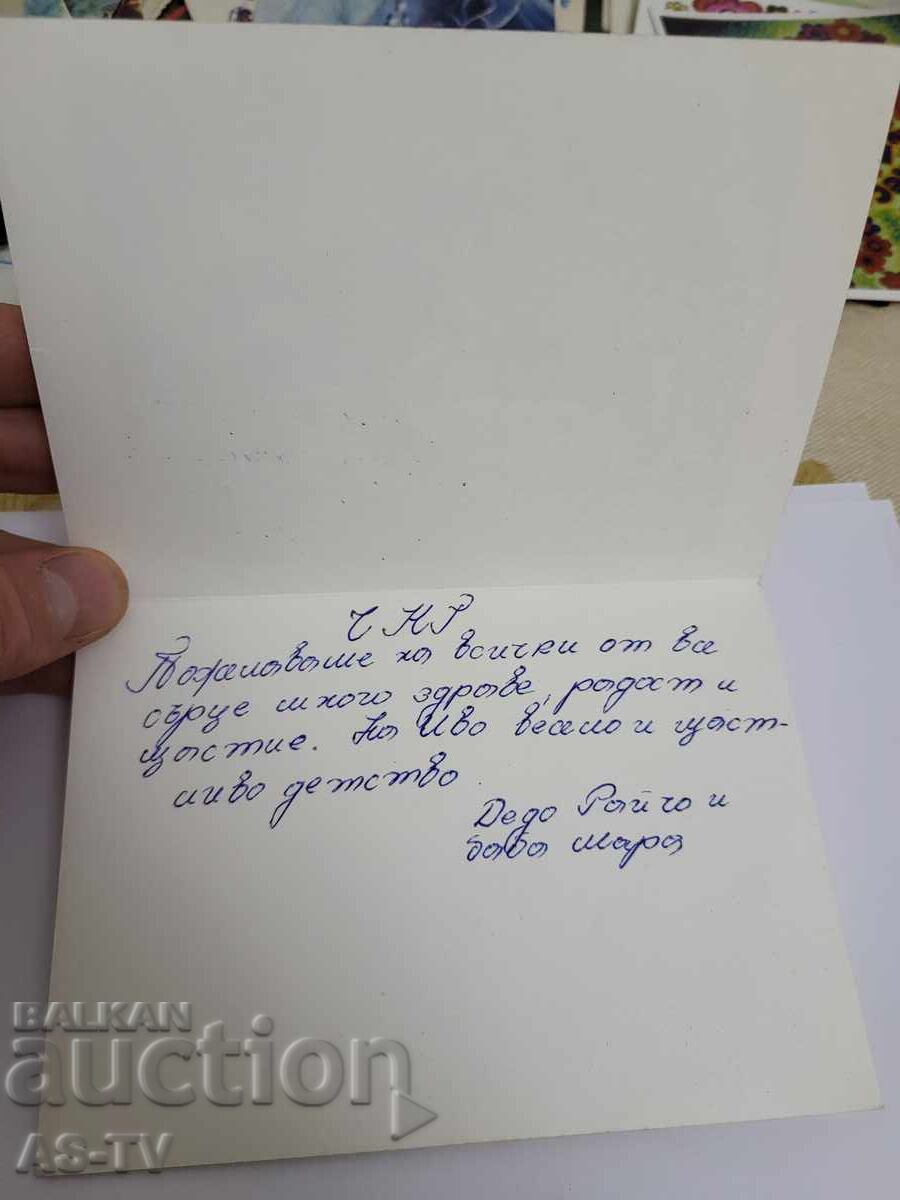 Ч Н Г
Пожелаваме на всички от все
сърце много здраве, радост и
щастие. На Иво весело и щаст-
ливо детство.
Дедо Райчо и
баба Мара
BALKAN
auction
AS-TV